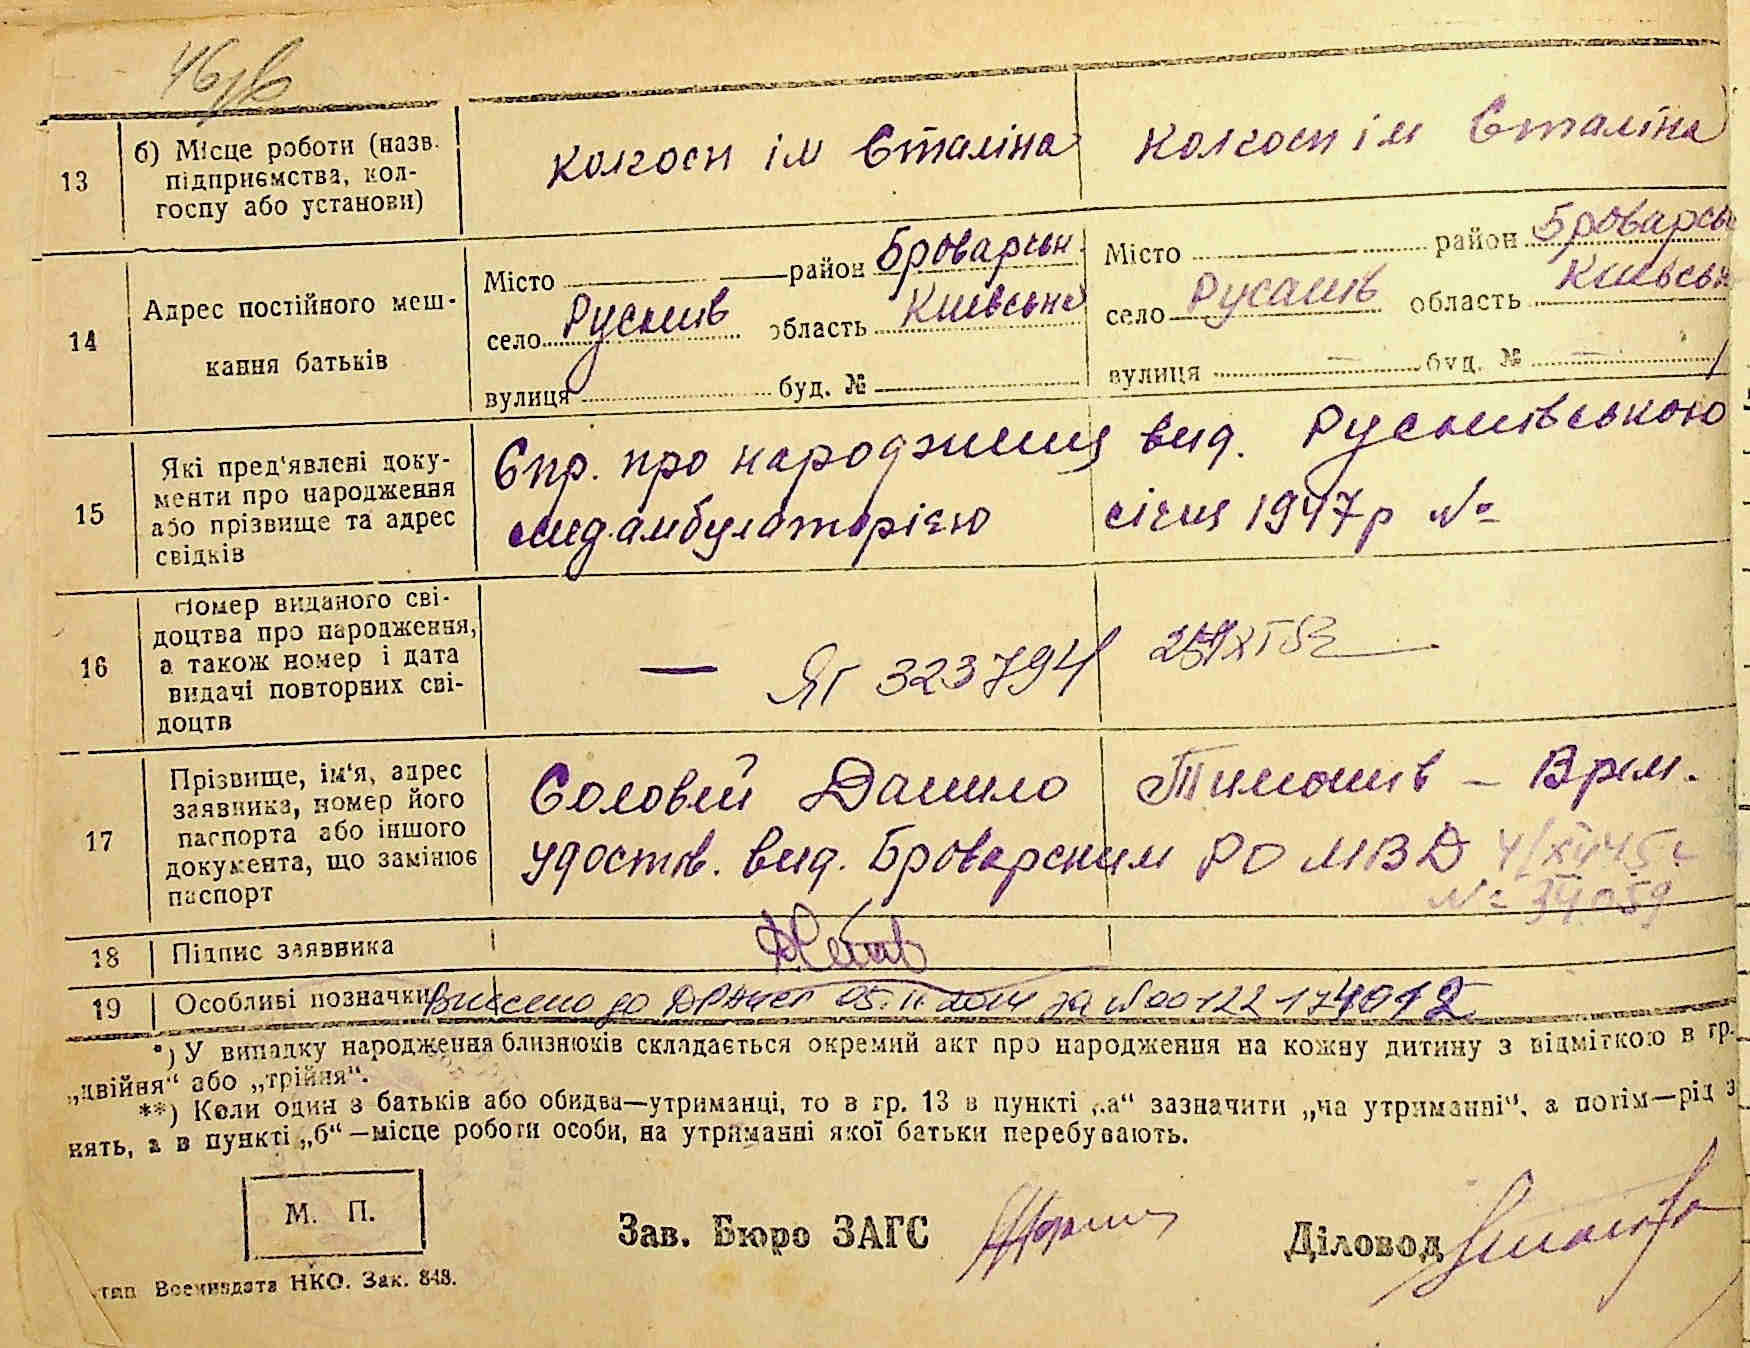 13 б) Місце роботи (назв. підприємства, кол-госпу або установи) колгосп ім Сталіна колгосп ім Сталіна
14 Адрес постійного меш-кання батьків
Місто район Броварськ. Місто район Броварськ
село Русанів область Київська село Русанів область Київськ
вулиця буд. № вулиця — буд. № —
15 Які пред'явлені доку-менти про народження або прізвище та адрес свідків
Спр. про народження вид. Русанівською
медамбулаторією січня 1947р №
16 Номер виданого сві-доцтва про народження, а також номер і дата видачі повторних сві-доцтв
— ЯГ 323794
17 Прізвище, ім'я, адрес заявника, номер його паспорта або іншого документа, що замінює паспорт
Соловей Данило Тимошів – Врем.
удостов. вид. Броварским РО МВД 4/XII45г
№ 34059
18 Підпис заявника
19 Особливі позначки Внесено до ДРАЦСГ 05.11.2014 за №00122174012
*) У випадку народження близнюків складається окремий акт про народження на кожну дитину з відміткою в гр.
„двійня“ або „трійня“.
**) Коли один з батьків або обидва—утриманці, то в гр. 13 в пункті „а“ зазначити „на утриманні“, а потім—рід з
нять, а в пункті „б“—місце роботи особи, на утриманні якої батьки перебувають.
М. П.
Зав. Бюро ЗАГС
Діловод
тип Воениздата НКО. Зак. 848.